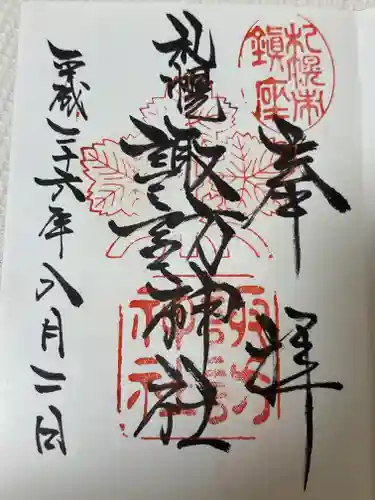 札幌市鎮座
奉拝
札幌
諏訪神社
諏訪神社
平成二十六年八月二日